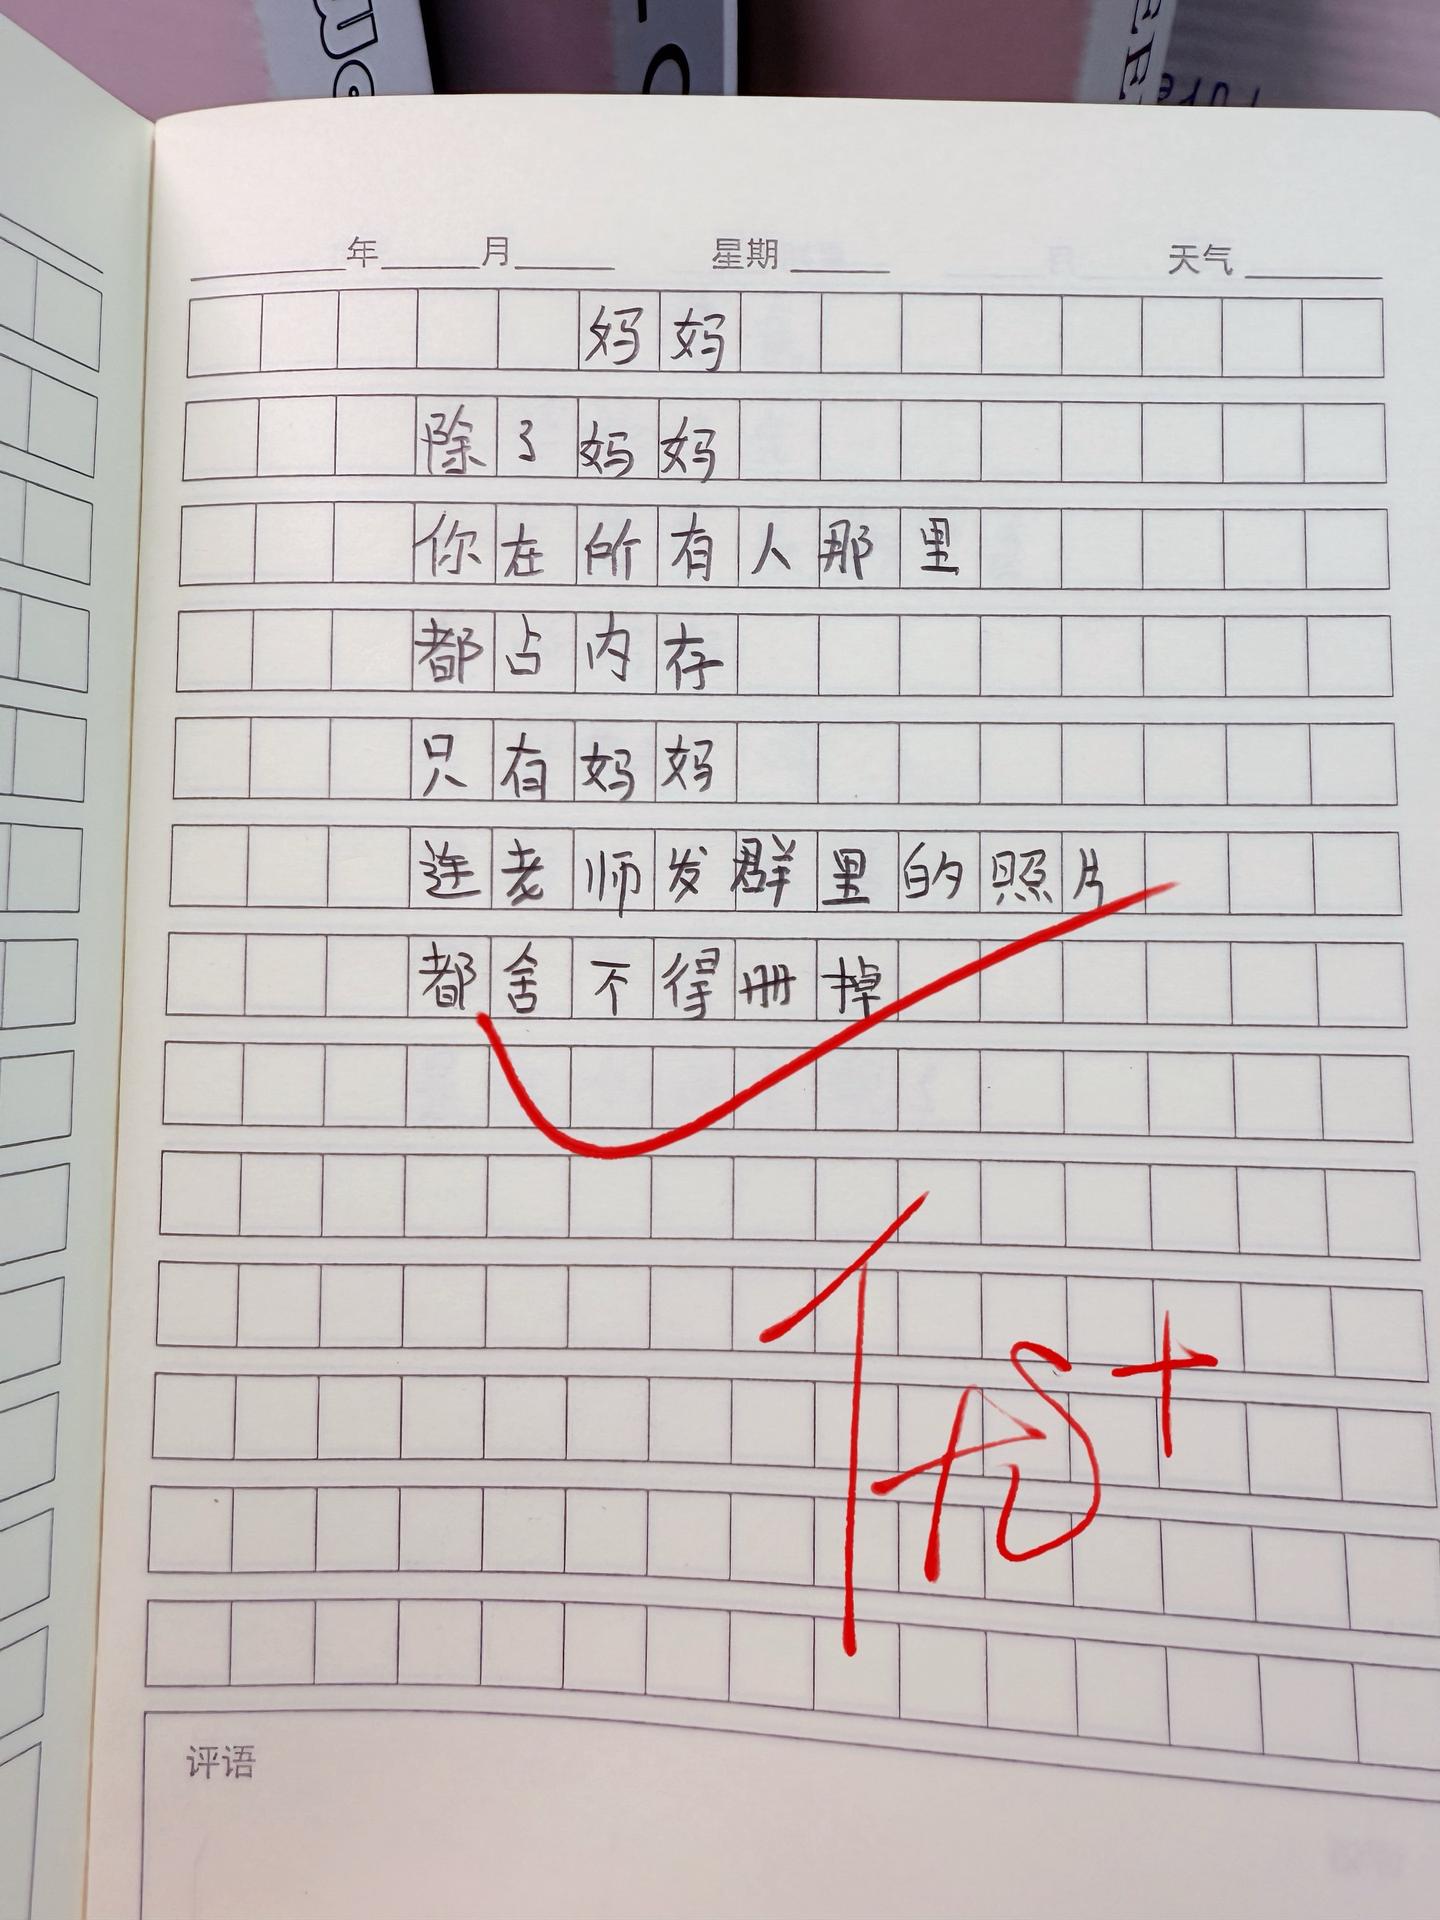 年 月 星期 天气
妈妈
除了妈妈
你在所有人那里
都占内存
只有妈妈
连老师发群里的照片
都舍不得册掉
优+
评语